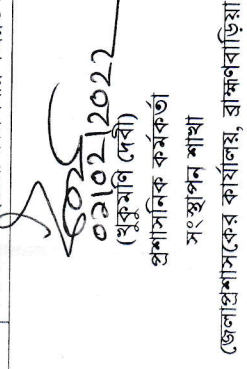 ০২/০২/২০২২
(খুকুমণি দেবী)
প্রশাসনিক কর্মকর্তা
সংস্থাপন শাখা
জেলাপ্রশাসকের কার্যালয়, ব্রাহ্মণবাড়িয়া